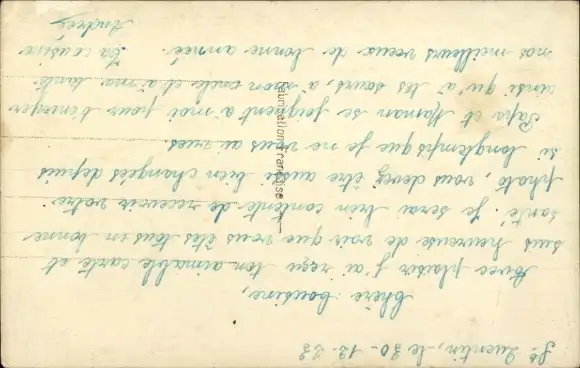 St Quentin, le 30-12-33
Chère Cousine,
Avec plaisir j'ai reçu ton aimable carte et
suis heureuse de voir que vous êtes tous en bonne
santé. Je serai bien contente de recevoir votre
photo, vous devez être aussi bien changées depuis
si longtemps que je ne vous ai vues.
Papa et Maman se joignent à moi pour t'envoyer
ainsi qu'à tes sœurs, à mon oncle et à ma tante
nos meilleurs vœux de bonne année. Ta cousine
Andrée
Fabrication Française